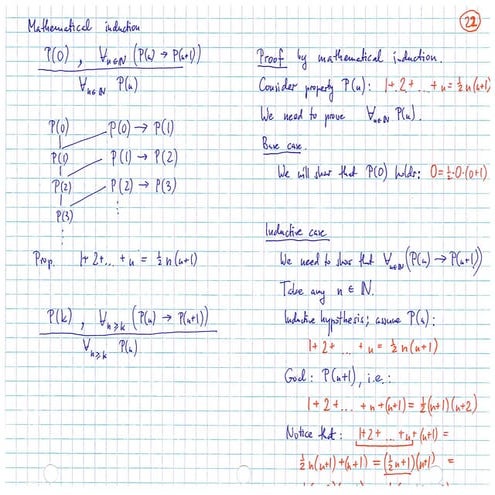 22
Mathematical induction
P(0) , ∀n∈ℕ (P(n) → P(n+1))
∀n∈ℕ P(n)
P(0)
P(0) → P(1)
P(1)
P(1) → P(2)
P(2)
P(2) → P(3)
P(3)
⋮
⋮
Prop. 1+2+...+n = ½n(n+1)
P(k) , ∀n≥k (P(n) → P(n+1))
∀n≥k P(n)
Proof by mathematical induction.
Consider property P(n): 1+2+...+n = ½n(n+1)
We need to prove ∀n∈ℕ P(n).
Base case.
We will show that P(0) holds: 0=½·0·(0+1)
Inductive case
We need to show that ∀n∈ℕ(P(n) → P(n+1))
Take any n ∈ ℕ.
Inductive hypothesis; assume P(n):
1+2+ ... +n = ½n(n+1)
Goal: P(n+1), i.e.:
1+2+ ... +n+(n+1) = ½(n+1)(n+2)
Notice that: 1+2+ ... +n+(n+1) =
½n(n+1)+(n+1) = (½n+1)(n+1) =